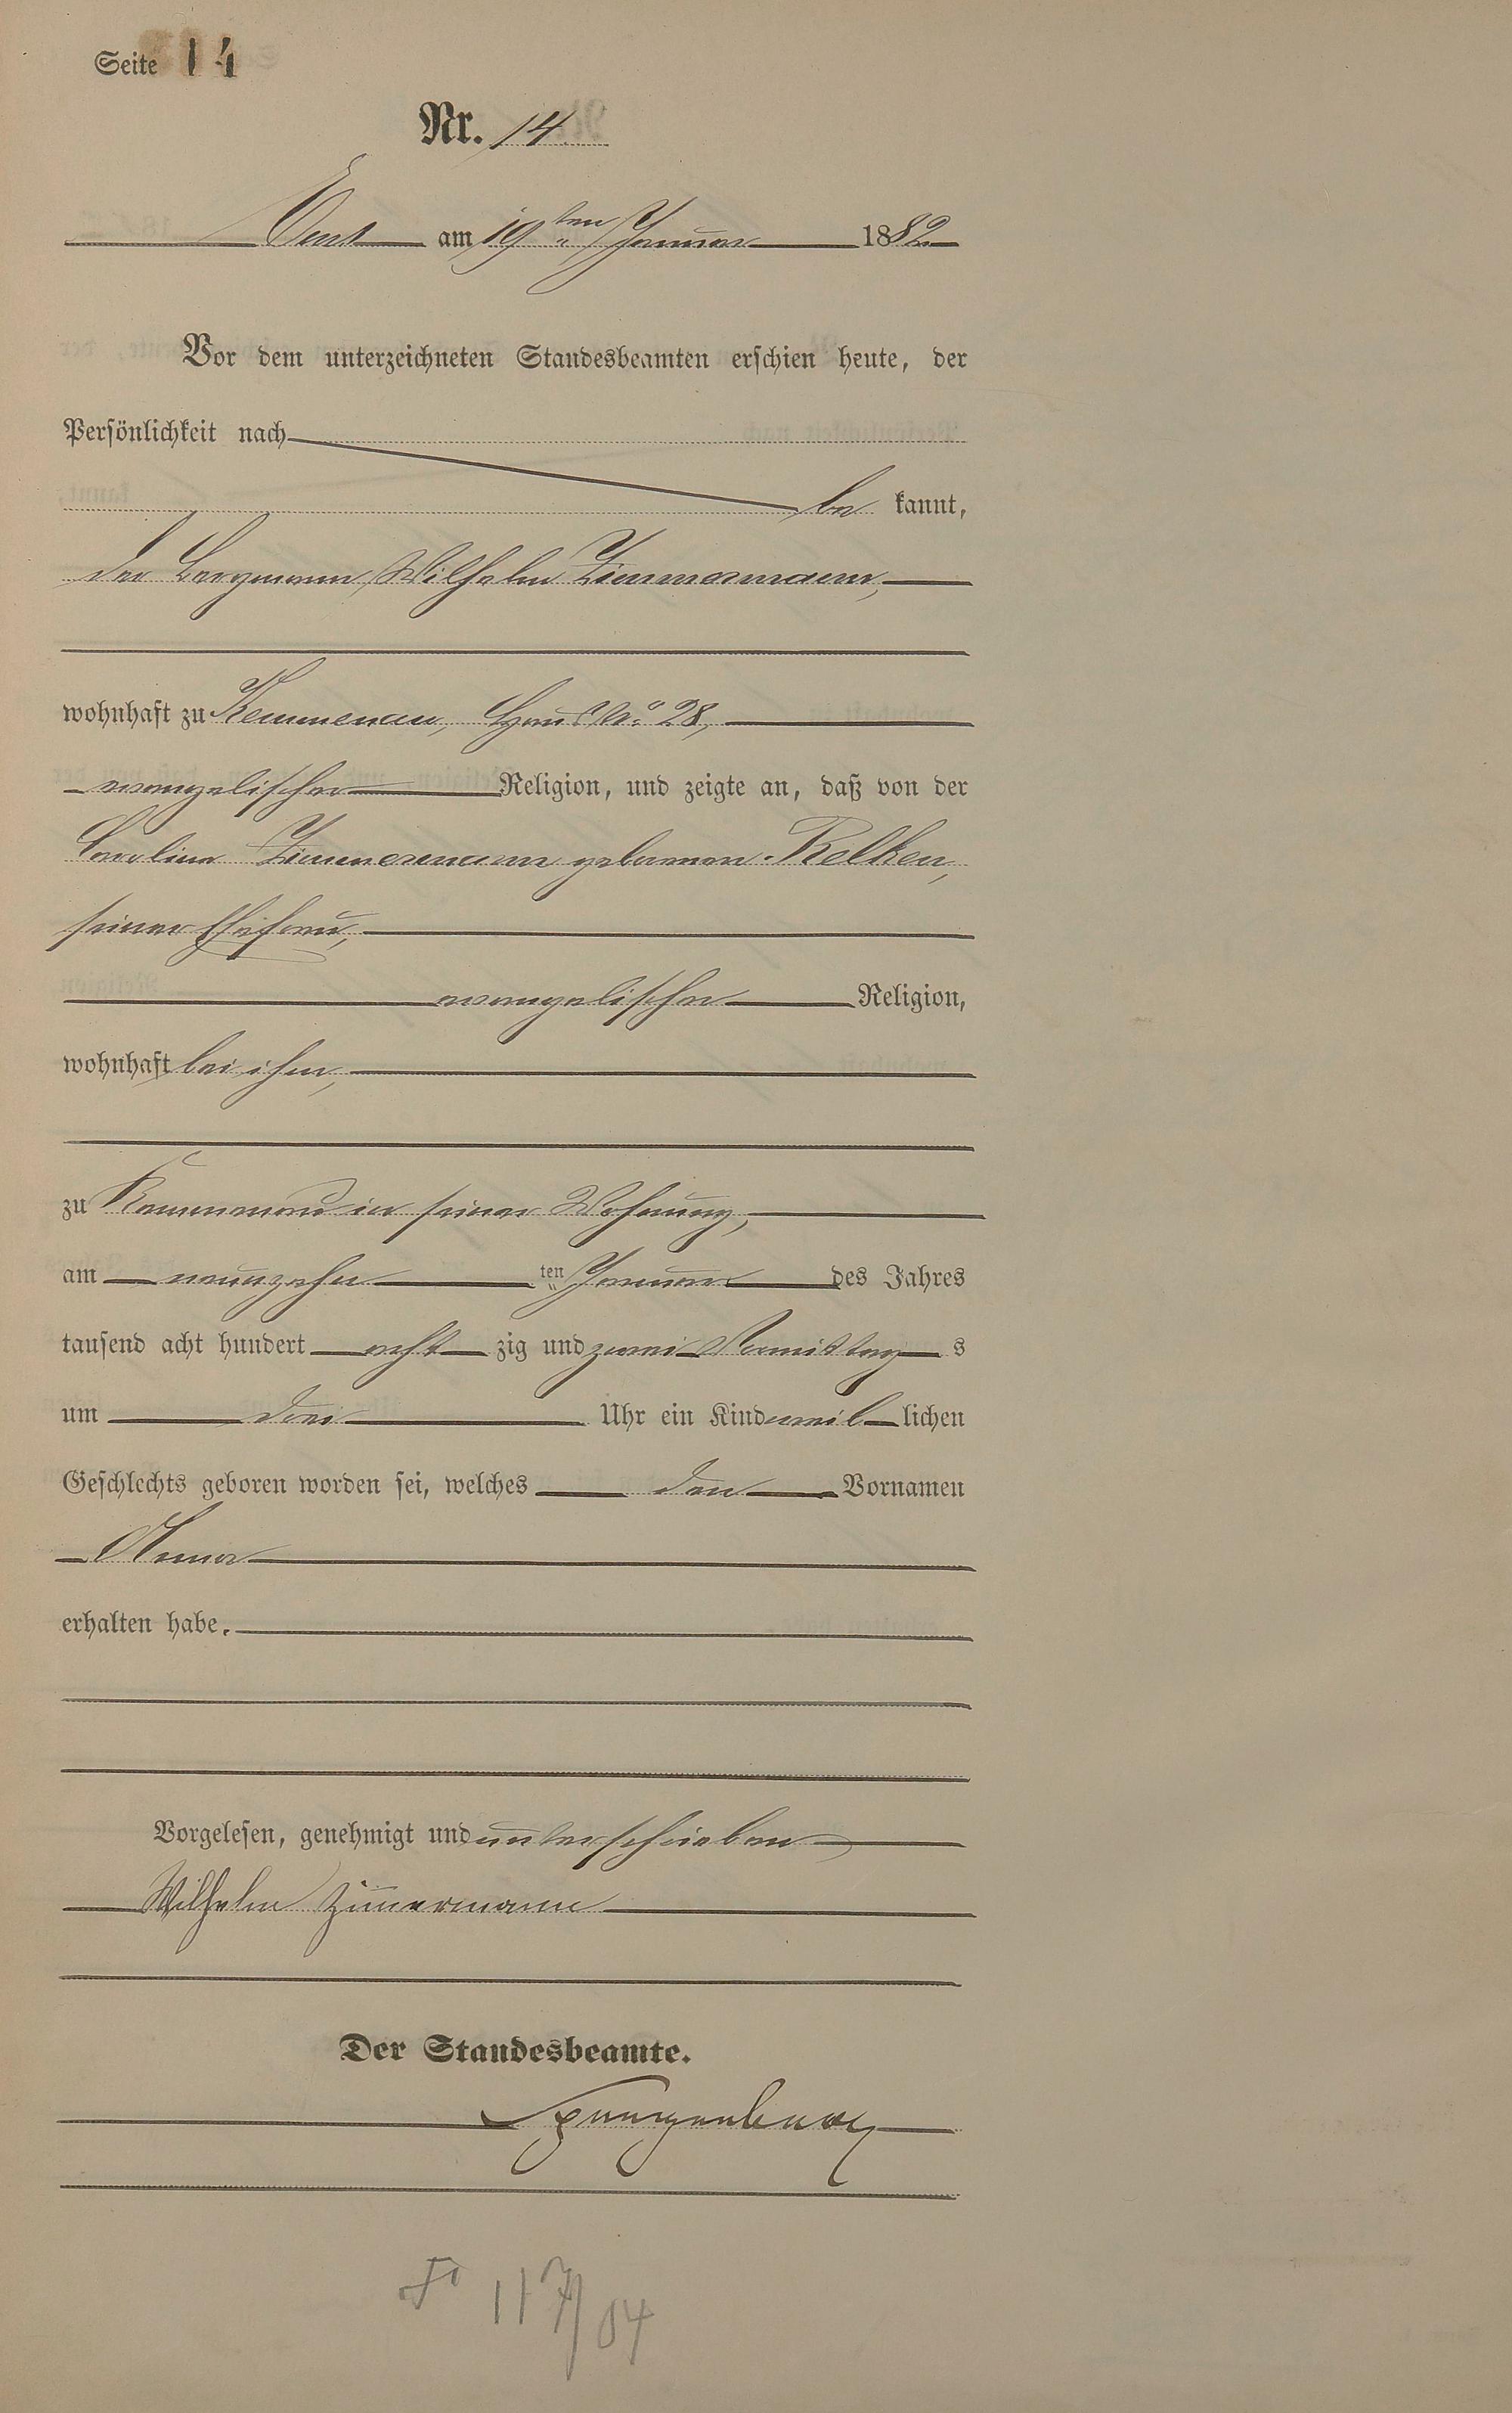 Seite 14
Nr. 14
Ems am 19ten Januar 1882
Vor dem unterzeichneten Standesbeamten erschien heute, der
Persönlichkeit nach
be kannt,
der Bergmann Wilhelm Zimmermann,
wohnhaft zu Kemmenau, Haus No. 28,
evangelischer Religion, und zeigte an, daß von der
Caroline Zimmermann geborenen Relken,
seiner Ehefrau,
evangelischer Religion,
wohnhaft bei ihm,
zu Kemmenau in seiner Wohnung,
am neunzehn ten Januar des Jahres
tausend acht hundert acht zig und zwei Vormittag s
um drei Uhr ein Kind weib lichen
Geschlechts geboren worden sei, welches den Vornamen
Anna
erhalten habe.
Vorgelesen, genehmigt und unterschrieben
Wilhelm Zimmermann
Der Standesbeamte.
Spangenberg
117/04